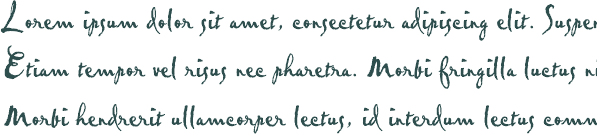 Lorem ipsum dolor sit amet, consectetur adipiscing elit. Suspen
Etiam tempor vel risus nec pharetra. Morbi fringilla luctus ni
Morbi hendrerit ullamcorper lectus, id interdum lectus comm